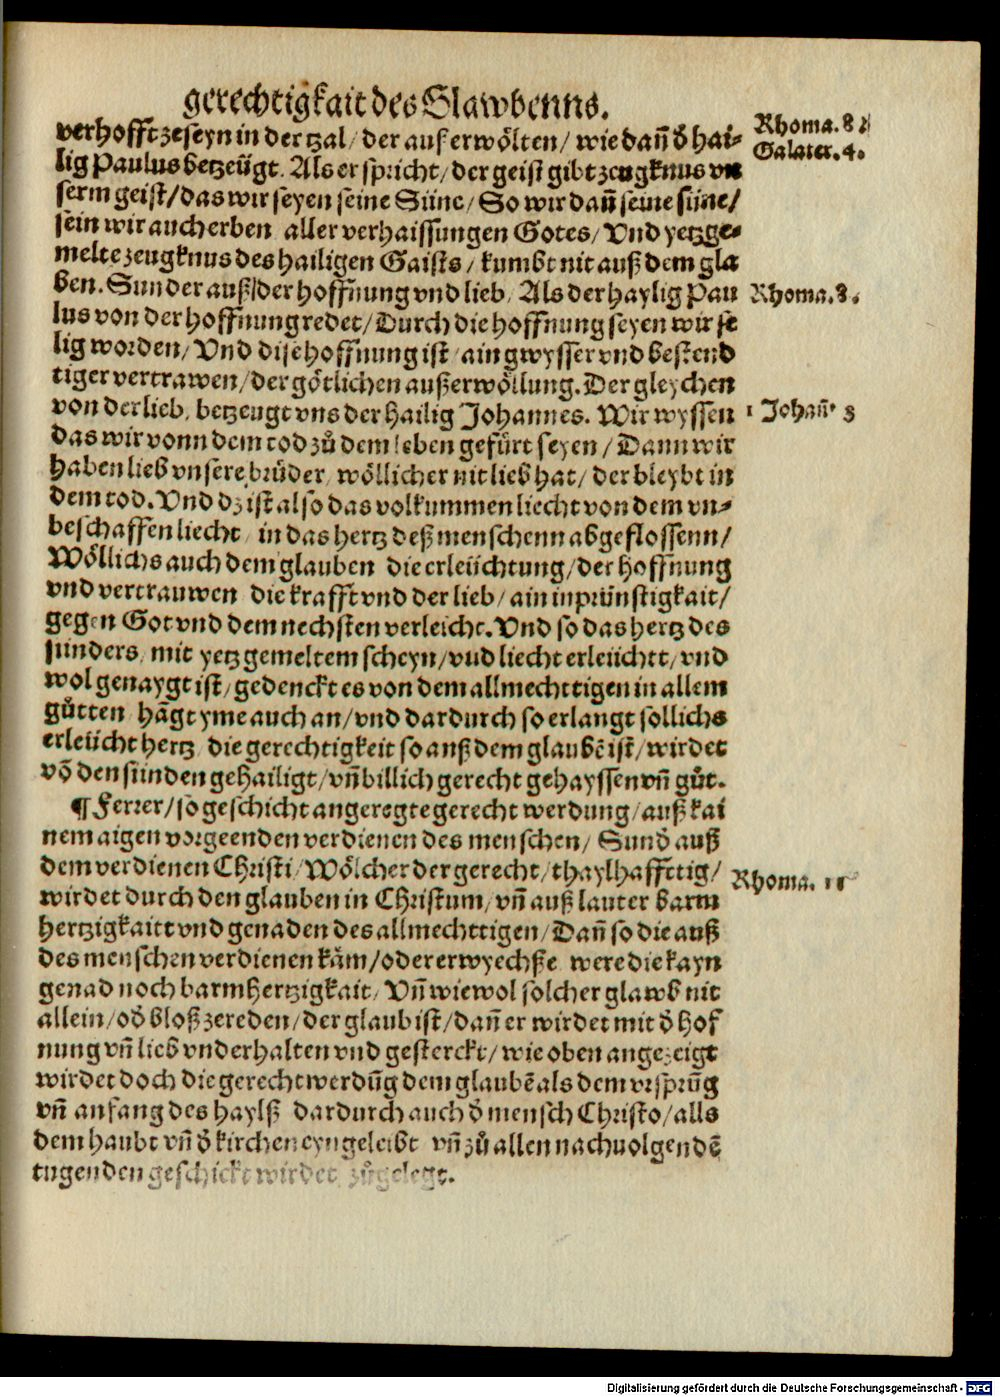 gerechtigkait des Glawbenns.
verhofft ze seyn in der tzal / der aufferwölten / wie dañ d̕ hai-
lig Paulus betzeügt. Als er spricht / der geist gibt zeugknus vn
serm geist / das wir seyen seine Süne / So wir dañ seine süne /
sein wir auch erben aller verhaissungen Gotes / Vnd yetzge-
melte zeugknus des hailigen Gaists / kumbt nit auß dem gla
ben. Sunder auß der hoffnung vnd lieb / Als der haylig Pau
lus von der hoffnung redet / Durch die hoffnung seyen wir se
lig worden / Vnd dise hoffnung ist ain gwysser vnd bestend
tiger vertrawen / der götlichen außerwöllung. Der gleychen
von der lieb, betzeugt vns der hailig Johannes. Wir wyssen
das wir vonn dem tod zů dem leben gefürt seyen / Dann wir
haben lieb vnsere brüder, wöllicher nit lieb hat / der bleybt in
dem tod. Vnd dz ist also das volkummen liecht von dem vn-
beschaffen liecht / in das hertz deß menschenn abgeflossenn /
Wöllichs auch dem glauben die erleüchtung / der hoffnung
vnd vertrauwen die krafft vnd der lieb / ain inprünstigkait /
gegen Got vnd dem nechsten verleicht. Vnd so das hertz des
sünders, mit yetz gemeltem scheyn / vnd liecht erleüchtt / vnd
wol genaygt ist / gedenckt es von dem allmechttigen in allem
gůtten hãgt yme auch an / vnd dardurch so erlangt sollichs
erleücht hertz die gerechtigkeit so auß dem glaubẽ ist / wirdet
võ den sünden gehailigt / vñ billich gerecht gehayssen vñ gůt.
¶ Ferrer / so geschicht angeregte gerecht werdung / auß kai
nem aigen vorgeenden verdienen des menschen / Sund̕ auß
dem verdienen Christi / Wölcher der gerecht / thaylhafftig /
wirdet durch den glauben in Christum / vñ auß lauter barm
hertzigkaitt vnd genaden des allmechttigen / Dañ so die auß
des menschen verdienen käm / oder erwyechße were die kayn
genad noch barmhertzigkait / Vñ wiewol solcher glawb nit
allein / od̕ bloß zereden / der glaub ist / dañ er wirdet mit d̕ hof
nung vñ lieb vnderhalten vnd gesterckt / wie oben angezeigt
wirdet doch die gerechtwerdũg dem glaubẽ als dem vrsprũg
vñ anfang des haylß dardurch auch d̕ mensch Christo / alls
dem haubt vñ d̕ kirchen eyngeleibt vñ zů allen nachuolgendẽ
tugenden geschickt wirdet zůgelegt.
Rhoma. 8.
Galater. 4.
Rhoma. 8.
1 Johañ 3
Rhoma. 11
Digitalisierung gefördert durch die Deutsche Forschungsgemeinschaft - DFG